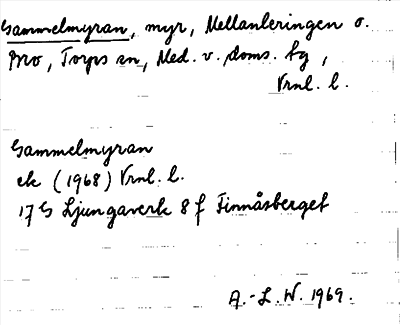 Sammelmyran, myr, Mellanleringen o.
Bro, Torps sn, Med. v. doms. hg,
Vrnl. l.
Sammelmyran
ek (1968) Vrnl. l.
17 G Ljungaverk 8 f Finnåsberget
A.-L. W. 1969.